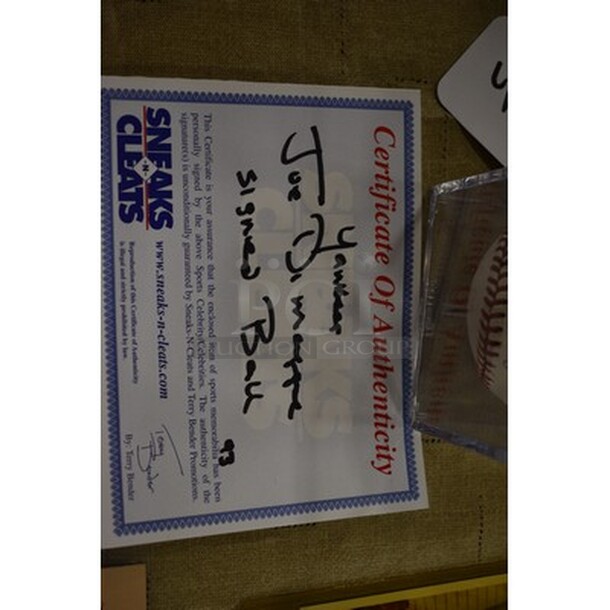 Certificate Of Authenticity
Yankees
Joe Dimaggio
Signed Ball
93
This Certificate is your assurance that the enclosed item of sports memorabilia has been
personally signed by the above Sports Celebrity/Celebrities. The authenticity of the
signature(s) is unconditionally guaranteed by Sneaks-N-Cleats and Terry Bender Promotions.
SNEAKS
-N-
CLEATS
www.sneaks-n-cleats.com
Reproduction of this Certificate of Authenticity
is illegal and strictly prohibited by law.
Terry Bender
By: Terry Bender
AUCTION GROUP